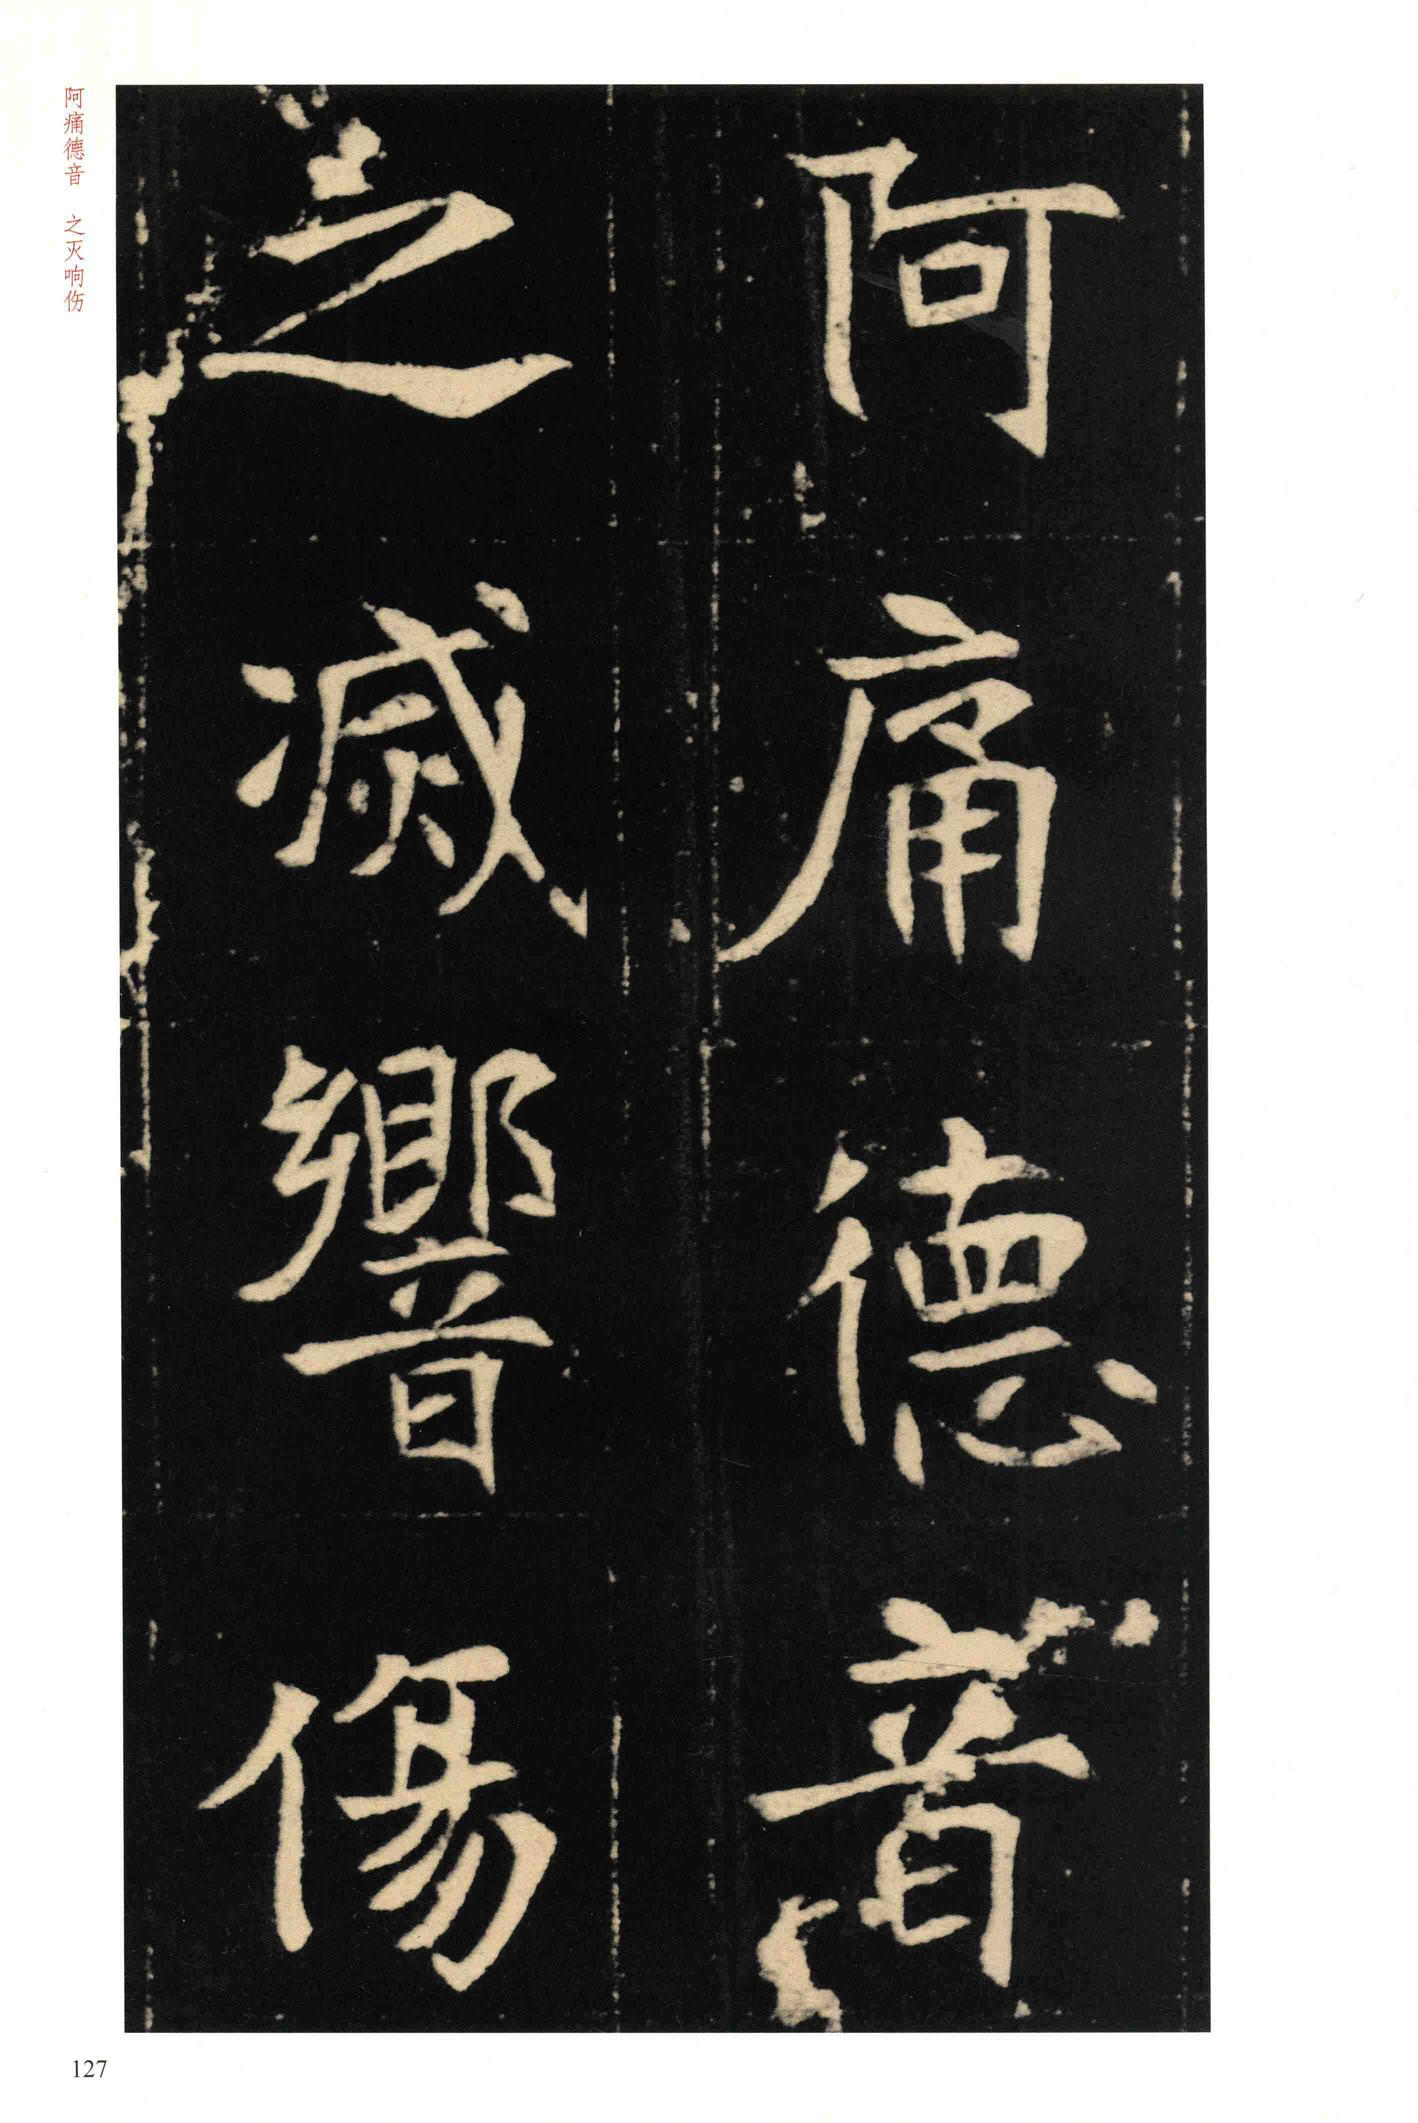 阿痛德音
之滅響傷
阿痛德音 之灭响伤
127